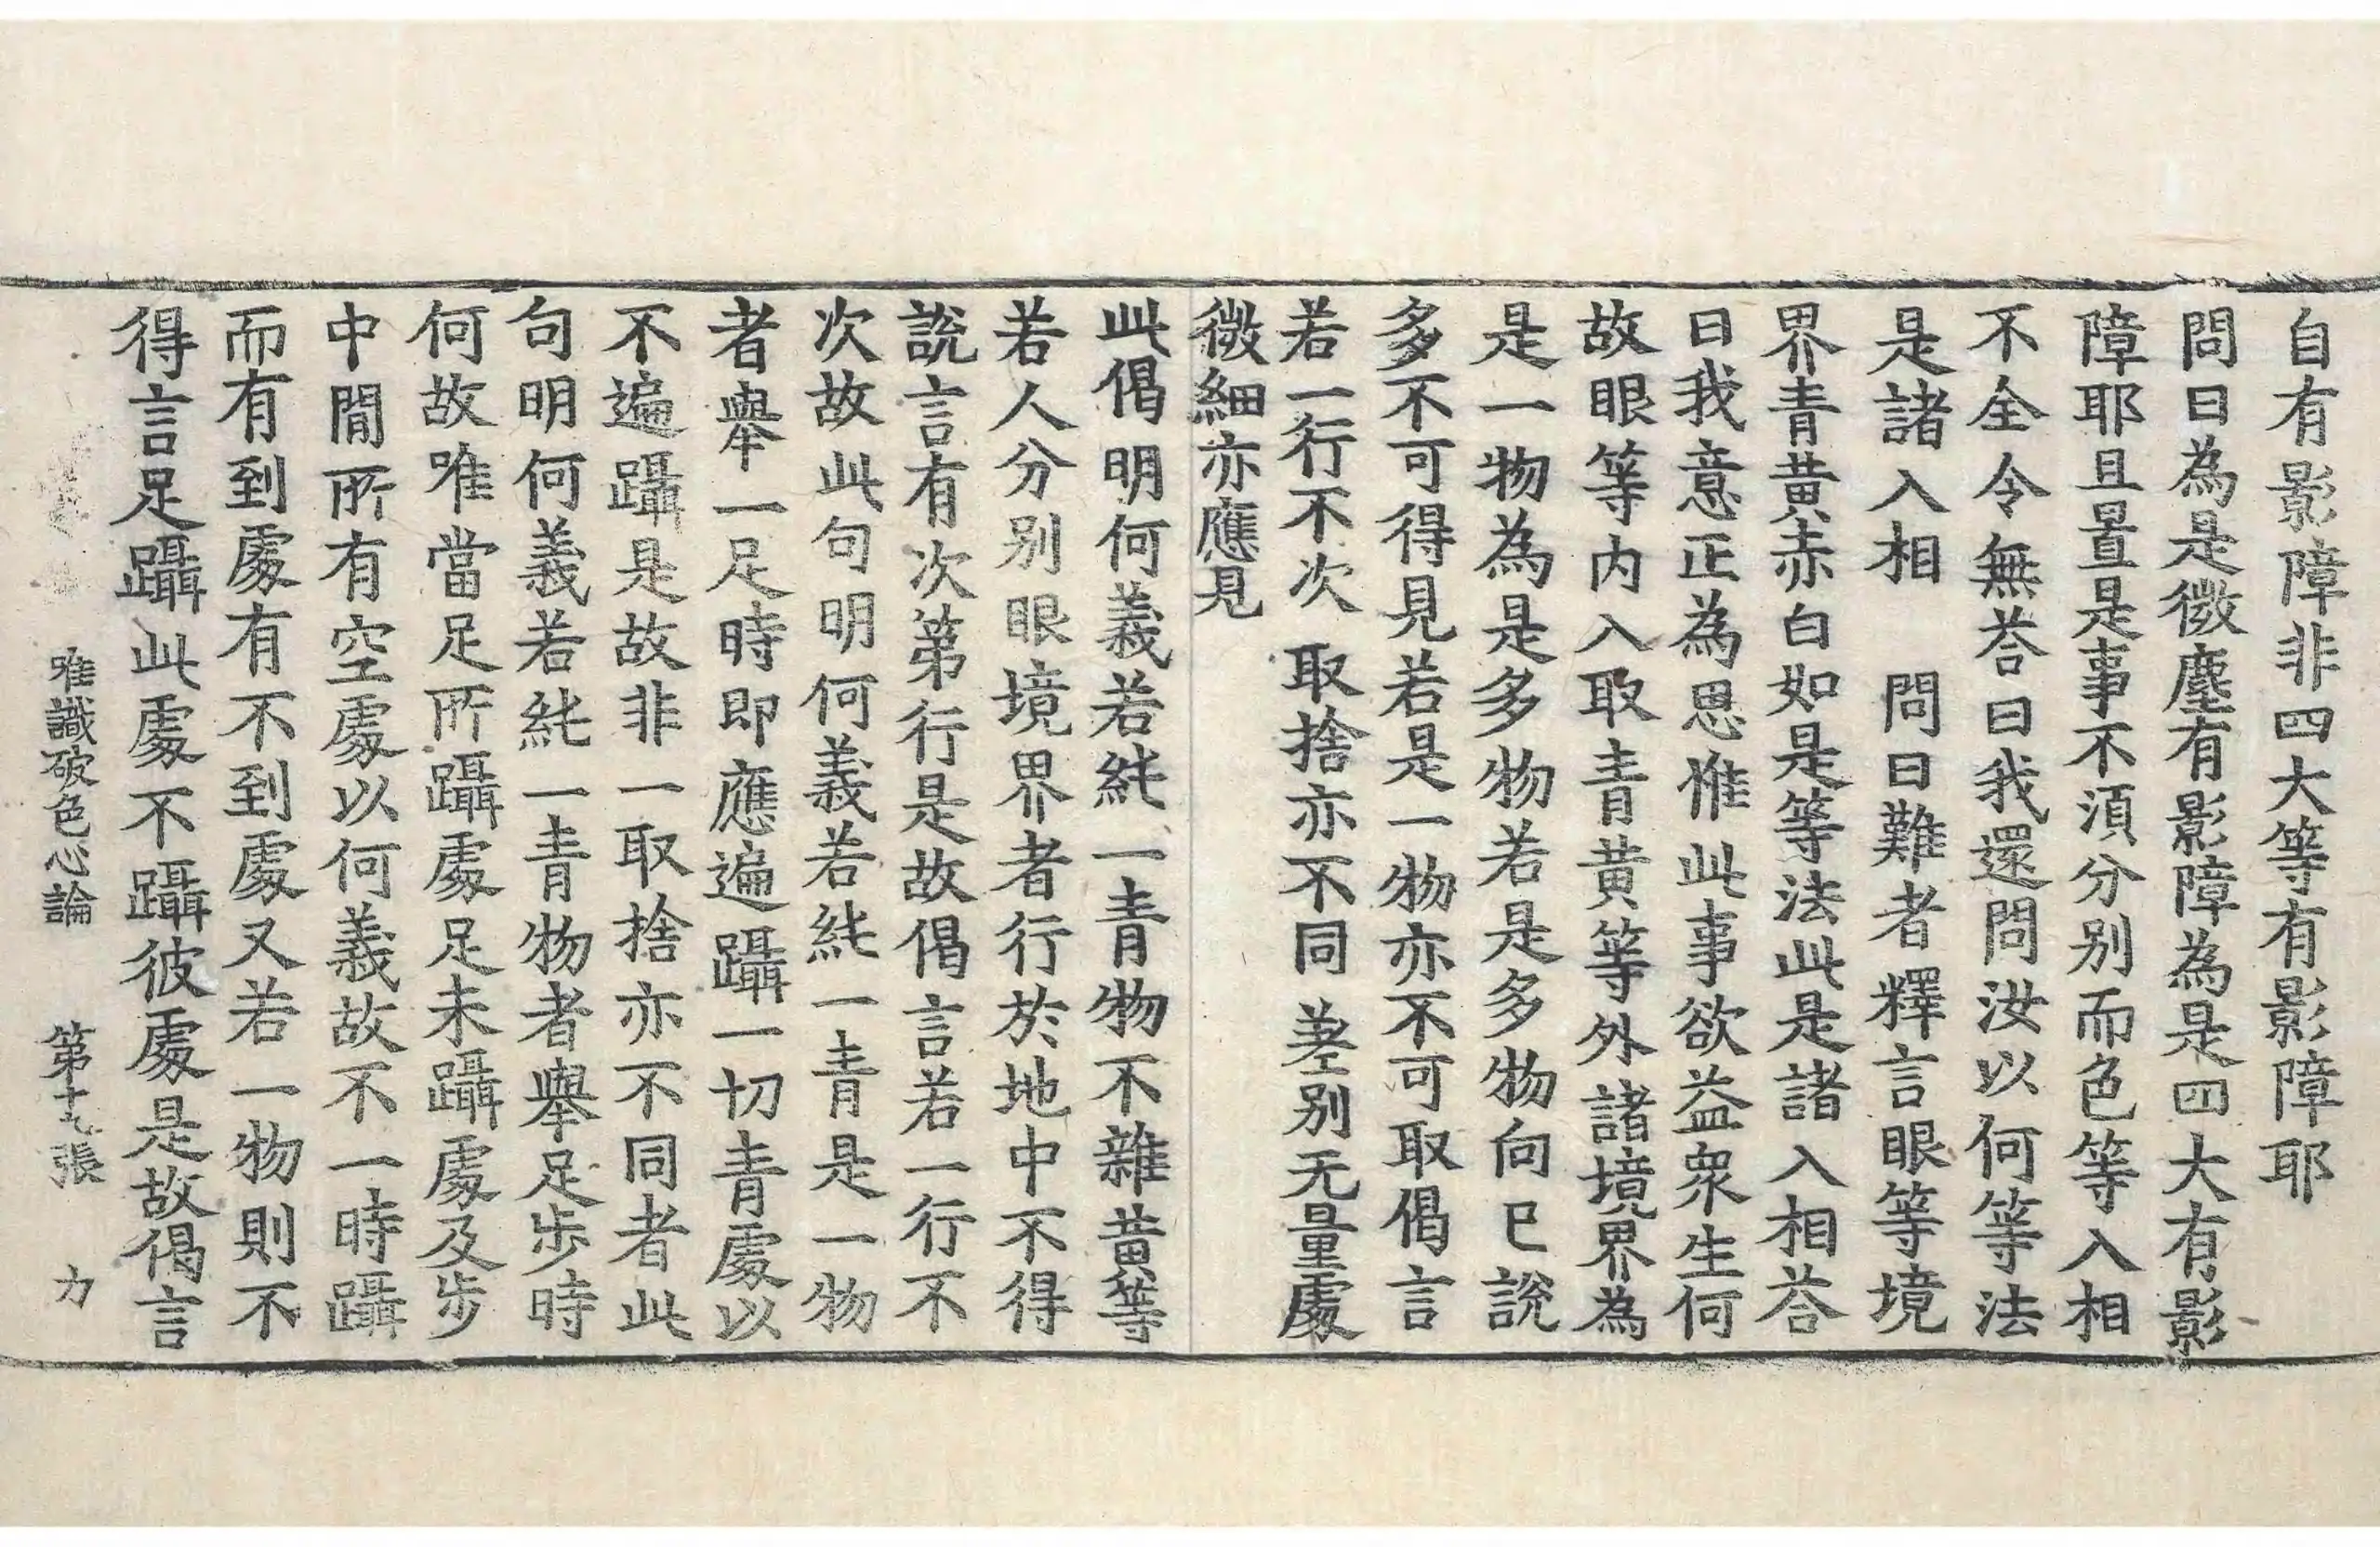 自有影障非四大等有影障耶
問曰為是微塵有影障為是四大有影
障耶且置是事不須分別而色等入相
不全令無荅曰我還問汝以何等法
是諸入相　問曰難者釋言眼等境
界青黃赤白如是等法此是諸入相荅
曰我意正為思惟此事欲益衆生何
故眼等內入取青黃等外諸境界為
是一物為是多物若是多物向已說
多不可得見若是一物亦不可取偈言
若一行不次　取捨亦不同　差別无量處
微細亦應見
此偈明何義若純一青物不雜黃等
若人分別眼境界者行於地中不得
說言有次第行是故偈言若一行不
次故此句明何義若純一青是一物
者舉一足時即應遍躡一切青處以
不遍躡是故非一取捨亦不同者此
句明何義若純一青物者舉足步時
何故唯當足所躡處足未躡處及步
中間所有空處以何義故不一時躡
而有到處有不到處又若一物則不
得言足躡此處不躡彼處是故偈言
唯識破色心論　第十九張　力